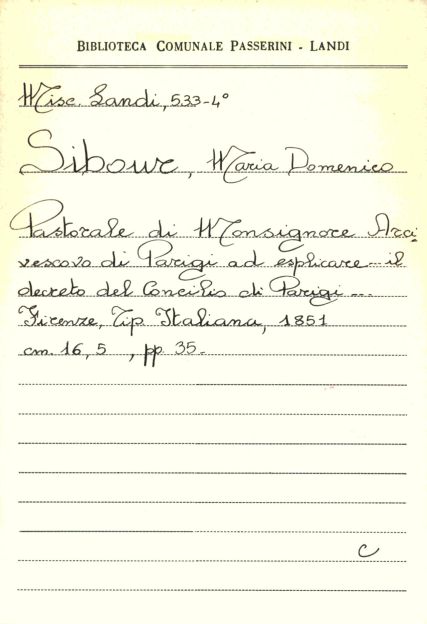 BIBLIOTECA COMUNALE PASSERINI - LANDI
Misc. Landi, 533-4°
Sibour, Maria Domenico
Pastorale di Monsignore Arci
vescovo di Parigi ad esplicare... il
decreto del Concilio di Parigi ...
Firenze, Tip. Italiana, 1851
cm. 16,5 , pp 35.
C